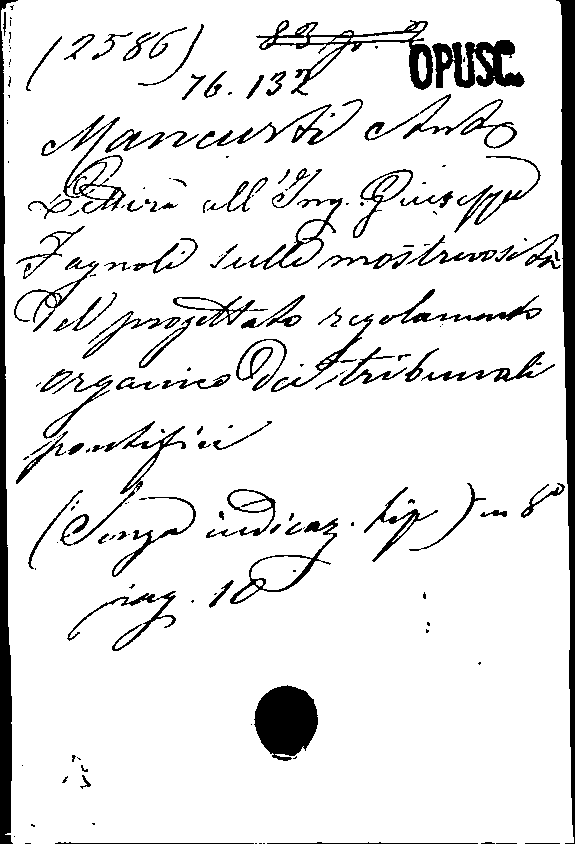 (2586)
76.132
OPUSC.
Mancurti Anto
Lettera all'Ing. Giuseppe
Fagnoli sulle mostruosità
del progettato regolamento
organico dei tribunali
pontifici
(Senza indicaz. tip) in 8º
pag. 10